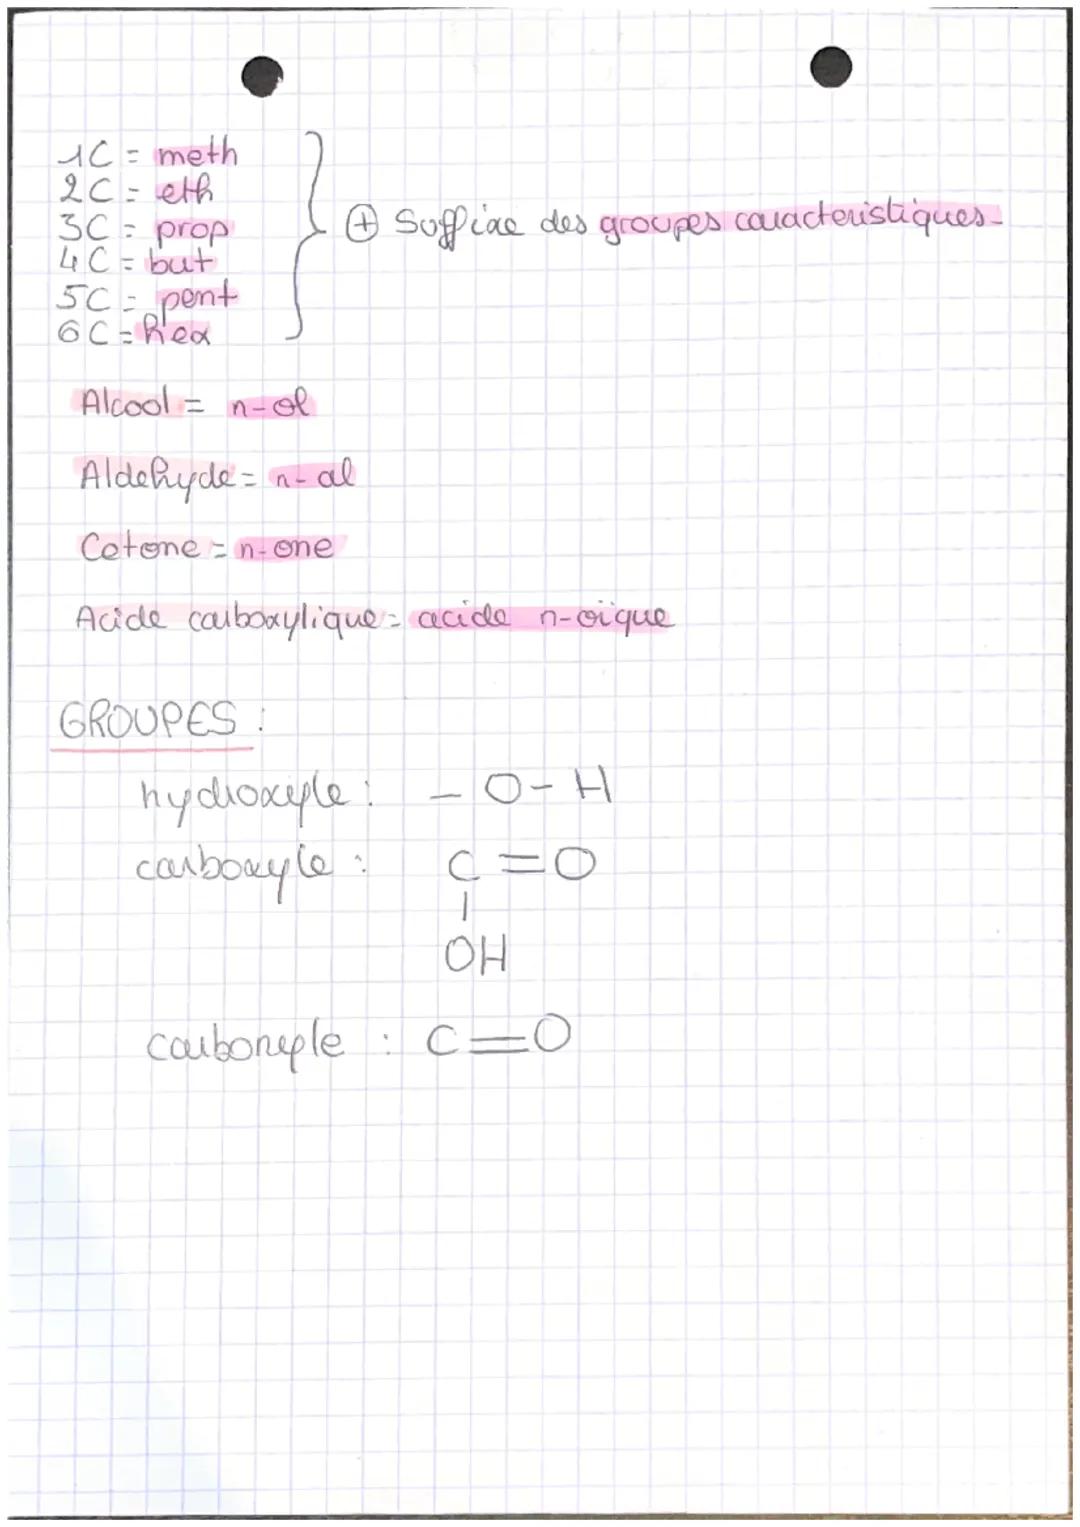 1C = meth
2C = eth
3C = prop
4C = but
5C = pent
6C = hex
⊕ Suffixe des groupes caracteristiques -
Alcool = n-ol
Aldehyde = n-al
Cetone = n-one
Acide carboxylique = acide n-oïque
GROUPES :
hydroxyle : - O - H
carboxyle : C = O
|
OH
carbonyle : C = O